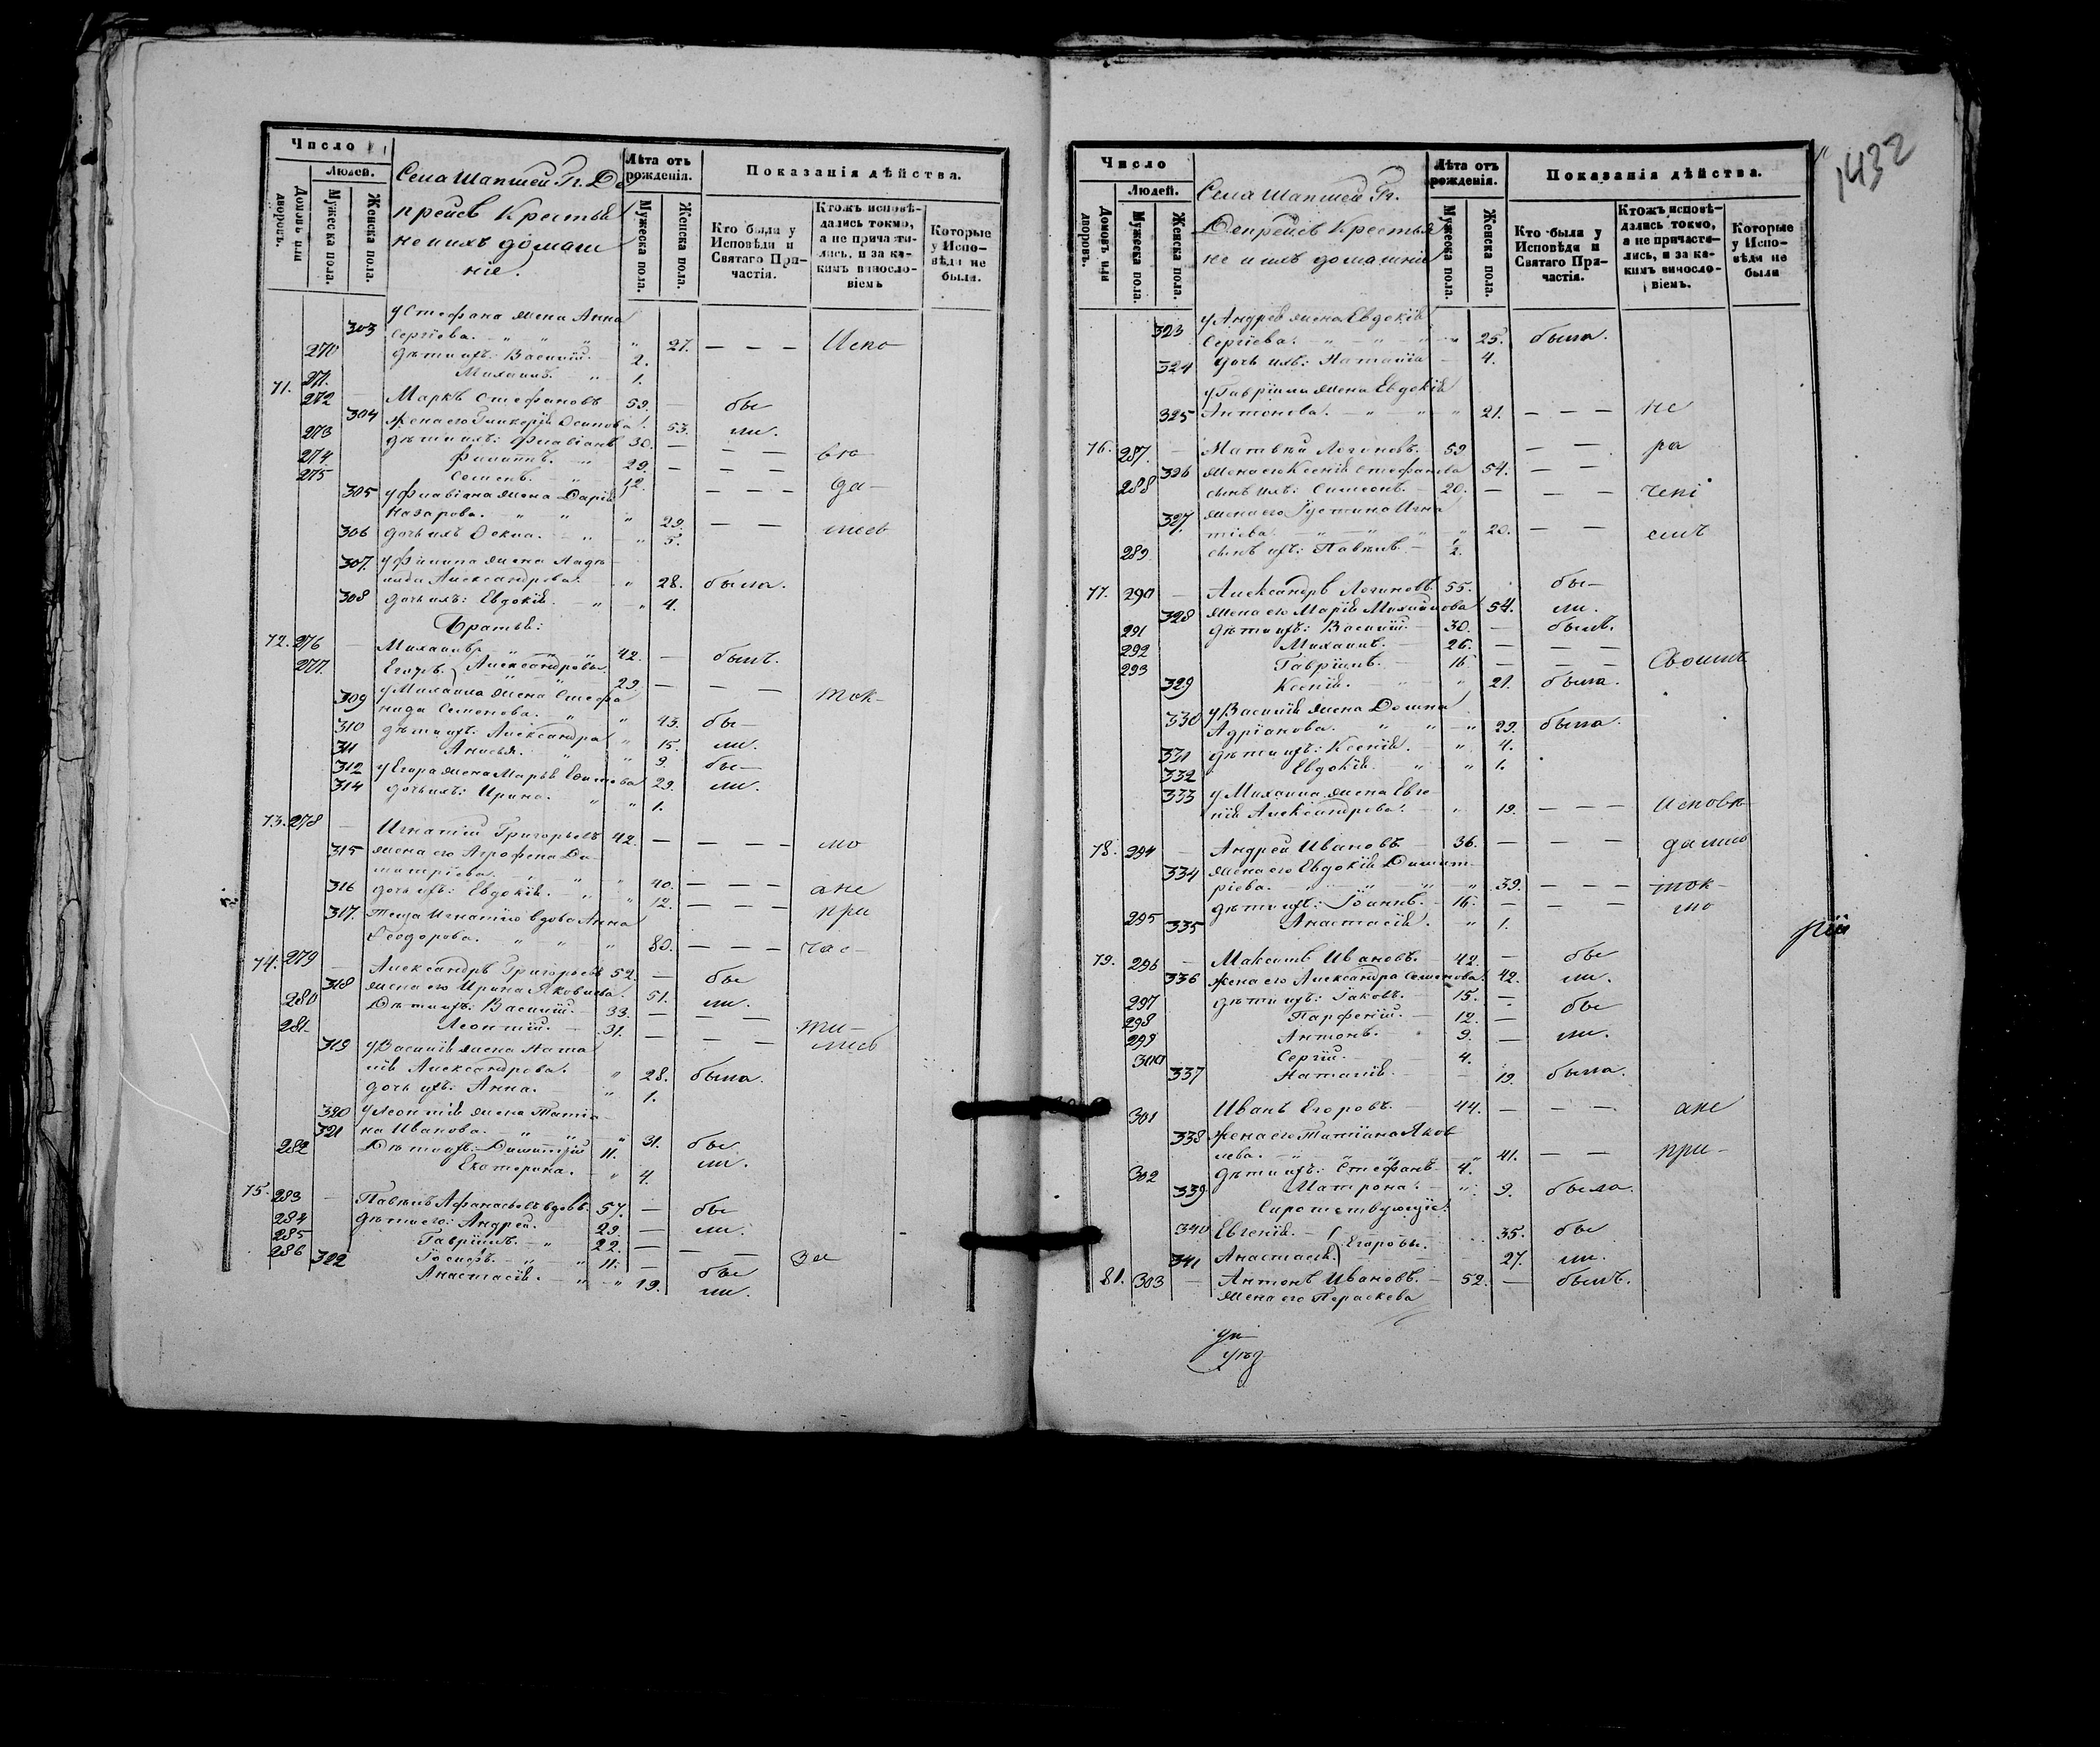 Число
Людей.
Домовъ или дворовъ.
Мужеска пола.
Женска пола.
Села Шапшей Гг. Де
прейсъ Крестья
не и ихъ домаш
ніе.
Лѣта отъ рожденія.
Мужеска пола.
Женска пола.
Показанія дѣйства.
Кто были у Исповѣди и Святаго Причастія.
Ктожъ исповѣдались токмо, а не причастились, и за какимъ винословіемъ
Которые у Исповѣди не были.
303 у Стефана жена Анна
Сергіева. " 27. — — — Испо—
270 дѣти ихъ: Василій. 2.
271. Михаилъ. 1.
71. 272 — Маркъ Стефановъ 59. — бы
304 жена его Гликерія Осипова 53. ли.
273 дѣти ихъ: Флавіанъ 30. — — — вѣ—
274 Филиппъ. 29. — — —
275 Семенъ. 12. — — — да—
305 у Флавіана жена Дарія
Назарова. " 29. — — лись
306 дочь ихъ Ѳекла. " 5.
307. у Филипа жена
Александрова. " 28. была.
308 дочь ихъ: Евдокія. " 4.
Братья:
72. 276 — Михаилъ 42. — былъ.
277. Егоръ. } Александровы. 29 — — —
309 у Михаила жена Стефа
нида Семенова. " 43. бы— ток—
310 дѣти ихъ: Александра " 15. ли.
311 Анисья. " 9. бы—
312 у Егора жена Марья 29. ли.
314 дочь ихъ: Ирина. " 1.
73. 278 — Игнатій Григорьевъ 42. — — — — мо
315 жена его Агрофена Ди
митріева. " 40. — — — ане
316 дочь ихъ: Евдокія. " 12. — — — при
317. теща Игнатію вдова Анна
Ѳеодорова. " 80. — — — час—
74. 279 — Александръ Григорьевъ 52. — бы
318 жена его Ирина Яковлева. 51. ли.
280 Дѣти ихъ: Василій. 33. — — —
281. Леонтій. 31. — — — ти—
319 у Василія жена Ната лись
лія Александрова. " 28. была.
дочь ихъ: Анна. " 1.
320 у Леонтія жена Татіа
321 на Иванова. " 31. бы
282 Дѣти ихъ: Димитрій 11. ли.
Екатерина. " 4.
75. 283 — Павелъ Афанасьевъ вдовъ. 57. — бы
284 дѣти его: Андрей. 29 — ли.
285 Гавріилъ. 22. — — —
286 322 Іосифъ. 11. — за
Анастасія. " 19. бы
ли.
1432
Число
Людей.
Домовъ или дворовъ.
Мужеска пола.
Женска пола.
Села Шапшей Гг.
Депрейсъ Крестья
не и ихъ домашніе
Лѣта отъ рожденія.
Мужеска пола.
Женска пола.
Показанія дѣйства.
Кто были у Исповѣди и Святаго Причастія.
Ктожъ исповѣдались токмо, а не причастились, и за какимъ винословіемъ.
Которые у Исповѣди не были
323 у Андрея жена Евдокія
Сергіева. " 25. была.
324 дочь ихъ: Наталія 4.
у Гавріила жена Евдокія
325 Антонова. " 21. — — — не
76. 287. — Матвѣй Логиновъ. 59 — — ра
326 жена его Ксенія Стефанова 54. — —
288 сынъ ихъ: Симеонъ. 20. — — — чені
327. жена его Іустина Игна
тіева. " 20. — — емъ
289 сынъ ихъ: Павелъ. ½.
77. 290 — Александръ Логиновъ 55. бы—
328 жена его Марія Михайлова 54. ли.
291 дѣти ихъ: Василій. 30. — былъ.
292 Михаилъ. 26. — — —
293 Гавріилъ. 16 — — — своимъ
329 Ксенія. " 21. была.
330 у Василія жена Домна
Адріанова. " 29. была.
331 дѣти ихъ: Ксенія. " 4.
332 Евдокія. " 1.
333 у Михаила жена Евге
нія Александрова. " 19. — — — исповѣ
78. 294 — Андрей Ивановъ 36. — — — дались
334 жена его Евдокія Димит
ріева. " 39. — — — ток—
дѣти ихъ: Іоаннъ. 16. — — — мо
295 335 Анастасія. " 1.
79. 296 — Максимъ Ивановъ. 42. — бы
336 жена его Александра Семенова. 42. ли.
297 дѣти ихъ: Іаковъ. 15. —
298 Парфеній. 12. — бы
299 Антонъ. 9. — ли.
300 Сергій. 4.
337 Наталія. 19. была.
301 Иванъ Егоровъ. 44. — — — ане
338 жена его Татіана Яков
лева. " 41. — — при—
302 дѣти ихъ: Стефанъ 4.
339 Матрона. " 9. была.
Сиротствующія:
340 Евгенія. } Егоровы. 35. бы
341 Анастасія. 27. ли.
81. 303 — Антонъ Ивановъ. 52. — былъ.
жена его Параскева